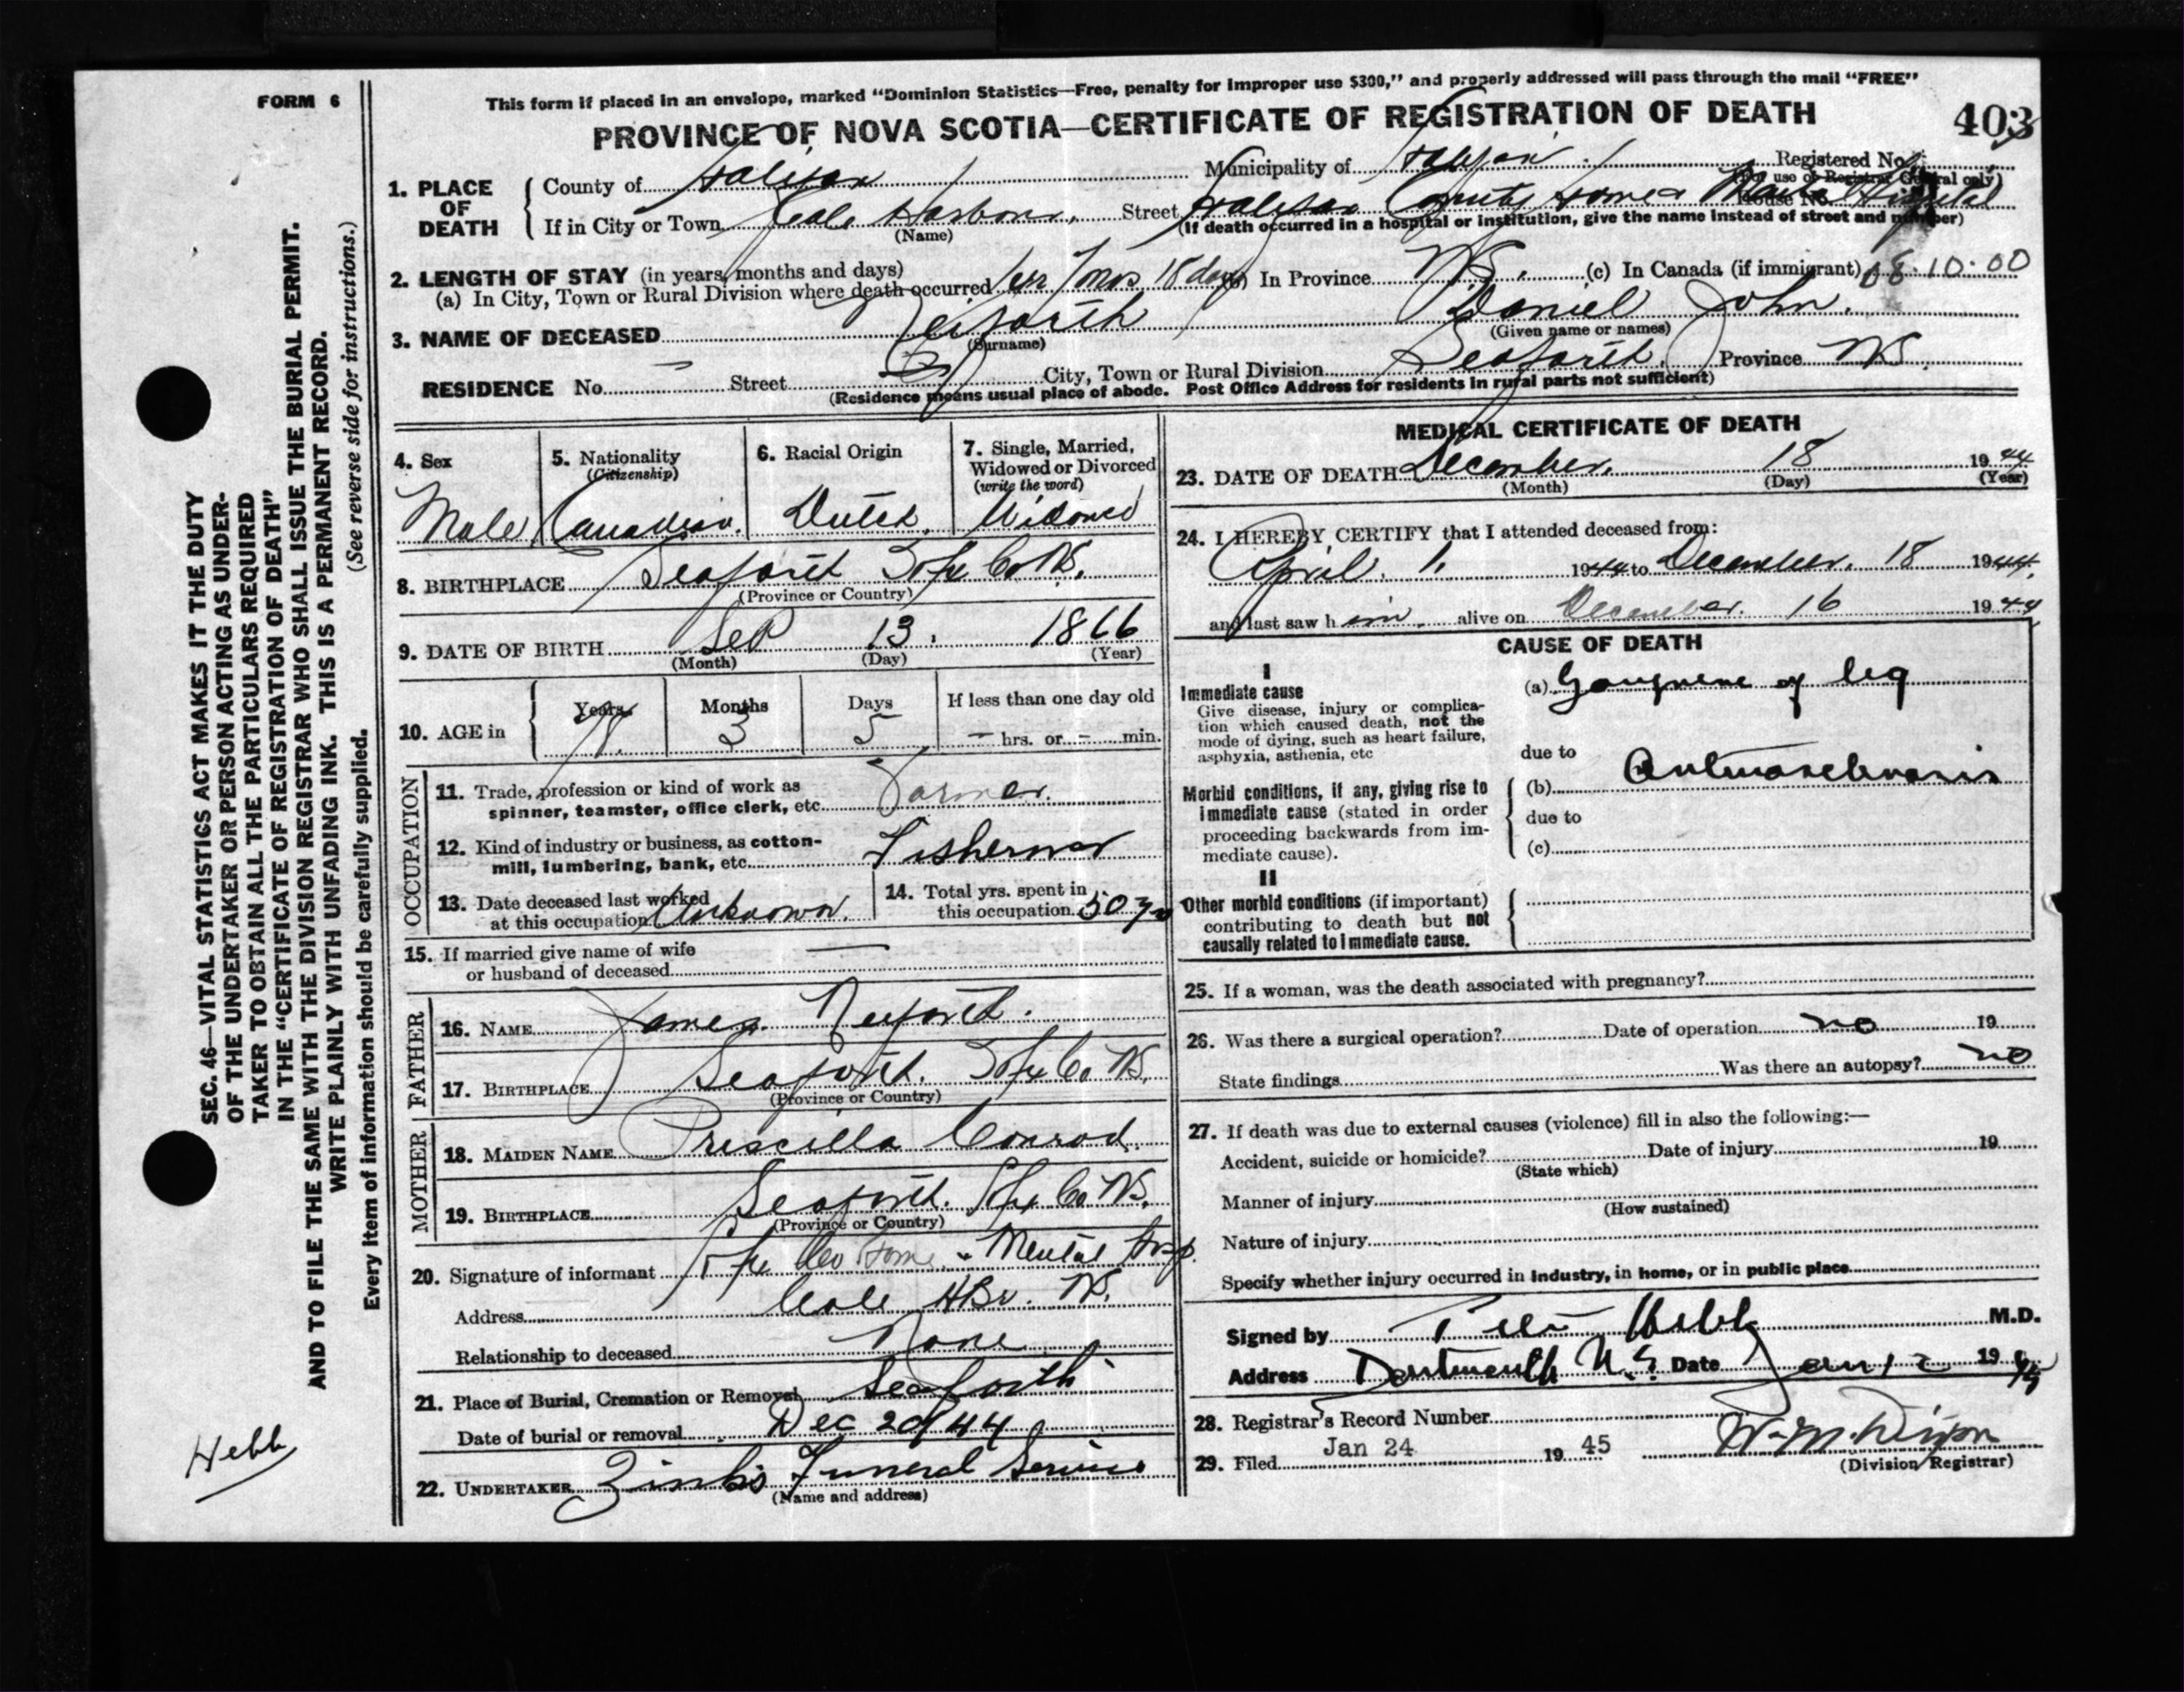 FORM 6
This form if placed in an envelope, marked "Dominion Statistics—Free, penalty for improper use $300," and properly addressed will pass through the mail "FREE"
PROVINCE OF NOVA SCOTIA—CERTIFICATE OF REGISTRATION OF DEATH
403
1. PLACE OF DEATH
County of Halifax Municipality of Halifax Registered No.
(For use of Registrar General only)
If in City or Town Cole Harbour. Street Halifax County Home & Mental Hospital House No.
(Name) (If death occurred in a hospital or institution, give the name instead of street and number)
2. LENGTH OF STAY (in years, months and days)
(a) In City, Town or Rural Division where death occurred 1 yr 7 mos 18 days (b) In Province N.S. (c) In Canada (if immigrant) 08·10·00
3. NAME OF DECEASED Daniel John.
(Surname) (Given name or names)
RESIDENCE No. Street City, Town or Rural Division Seaforth. Province NS.
(Residence means usual place of abode. Post Office Address for residents in rural parts not sufficient)
4. Sex
Male
5. Nationality
(Citizenship)
Canadian.
6. Racial Origin
Dutch.
7. Single, Married, Widowed or Divorced
(write the word)
Widowed
8. BIRTHPLACE Seaforth Hfx Co NS.
(Province or Country)
9. DATE OF BIRTH Sep 13. 1866
(Month) (Day) (Year)
10. AGE in
Years Months Days If less than one day old
78. 3 5 – hrs. or – min.
OCCUPATION
11. Trade, profession or kind of work as
spinner, teamster, office clerk, etc. Farmer.
12. Kind of industry or business, as cotton-
mill, lumbering, bank, etc. Fisherman
13. Date deceased last worked
at this occupation Unknown.
14. Total yrs. spent in
this occupation 50 yrs
15. If married give name of wife
or husband of deceased —
FATHER
16. NAME James
17. BIRTHPLACE Seaforth. Hfx Co NS.
(Province or Country)
MOTHER
18. MAIDEN NAME Priscilla Conrod.
19. BIRTHPLACE Seaforth. Hfx Co NS.
(Province or Country)
20. Signature of informant Hfx Co Home & Mental Hosp.
Address Cole Hbr. NS.
Relationship to deceased None
21. Place of Burial, Cremation or Removal Seaforth
Date of burial or removal Dec 20/44
22. UNDERTAKER Zink's Funeral Service
(Name and address)
MEDICAL CERTIFICATE OF DEATH
23. DATE OF DEATH December. 18 1944
(Month) (Day) (Year)
24. I HEREBY CERTIFY that I attended deceased from:
April. 1. 1944 to December. 18 1944.
and last saw h im. alive on December. 16 1944
CAUSE OF DEATH
I
Immediate cause
Give disease, injury or complica-
tion which caused death, not the
mode of dying, such as heart failure,
asphyxia, asthenia, etc
(a) Gangrene of leg
due to
Morbid conditions, if any, giving rise to
immediate cause (stated in order
proceeding backwards from im-
mediate cause).
(b) Arteriosclerosis
due to
(c)
II
Other morbid conditions (if important)
contributing to death but not
causally related to immediate cause.
25. If a woman, was the death associated with pregnancy?
26. Was there a surgical operation? Date of operation no 19
State findings Was there an autopsy? no
27. If death was due to external causes (violence) fill in also the following:—
Accident, suicide or homicide? Date of injury 19
(State which)
Manner of injury
(How sustained)
Nature of injury
Specify whether injury occurred in industry, in home, or in public place
Signed by Hebb M.D.
Address Dartmouth N.S. Date Jan 12 1945
28. Registrar's Record Number
29. Filed Jan 24 19 45
(Division Registrar)
SEC. 46—VITAL STATISTICS ACT MAKES IT THE DUTY
OF THE UNDERTAKER OR PERSON ACTING AS UNDER-
TAKER TO OBTAIN ALL THE PARTICULARS REQUIRED
IN THE "CERTIFICATE OF REGISTRATION OF DEATH"
AND TO FILE THE SAME WITH THE DIVISION REGISTRAR WHO SHALL ISSUE THE BURIAL PERMIT.
WRITE PLAINLY WITH UNFADING INK. THIS IS A PERMANENT RECORD.
(See reverse side for instructions.)
Every item of information should be carefully supplied.
Hebb